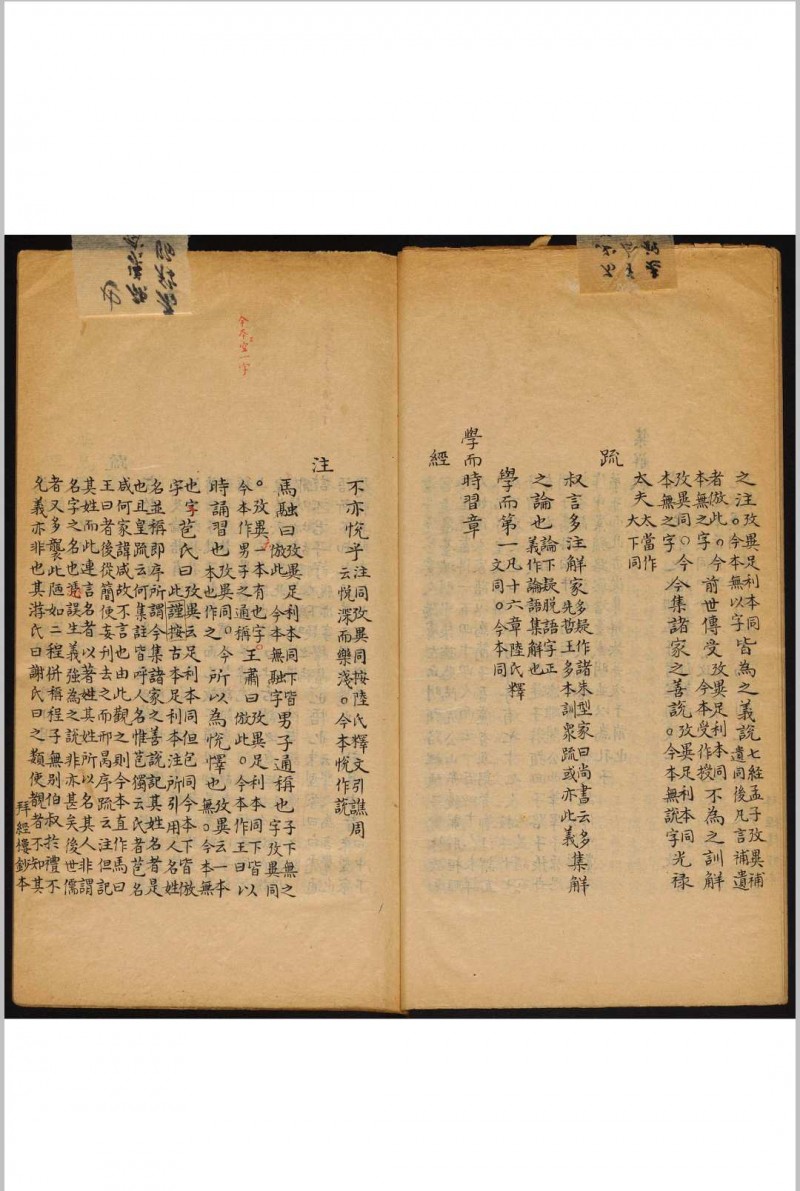 之注攷異足利本同。今本無以字皆為之義說七經孟子攷異補遺同後凡言補遺
者倣此。今本無之字前世傳受攷異足利本同。今本受作授不為之訓解
攷異同。今本無之字今集諸家之善說攷異足利本同。今本無說字光祿
大夫大當作太下同
疏
叔言多注解家多疑作諸朱型家曰尚書云多先哲王多本訓眾疏或亦此義集解
之論也論下疑脫語字正義作論語集解也
學而第一凡十六章陸氏釋文同。今本同
學而時習章
經
不亦悅乎注同攷異同按陸氏釋文引譙周云悅深而樂淺。今本悅作說
注
馬融曰攷異足利本同下皆倣此。今本無融字男子通稱也子下無之字攷異同
。攷異一本有也字。今本作男子之通稱王肅曰攷異足利本同下皆倣此。今本作王曰以
時誦習也攷異同。今本也作之所以為悅懌也攷異云一本無。今本無
也字苞氏曰攷異云足利本但包同今本下皆倣此謹按古本足利本注所引用人名姓
名並稱即序所謂今集諸家之善說記其姓名者是
也且皇疏云何集註皆呼人名惟苞獨云氏者苞名
咸何家諱咸故不言也由此觀之則今本直作馬曰
王曰者後從簡便妄刊去之而邢昺序疏云注但記
其姓而此連言名者以著其姓所以名其人非謂
名字之名也憑誤生義強為之說非亦甚矣後世儒
者又多襲此陋如二程併稱程子無別伯叔於禮不
允義亦非也其游氏曰謝氏曰之類使觀者不知其
拜經樓鈔本
今本空一字